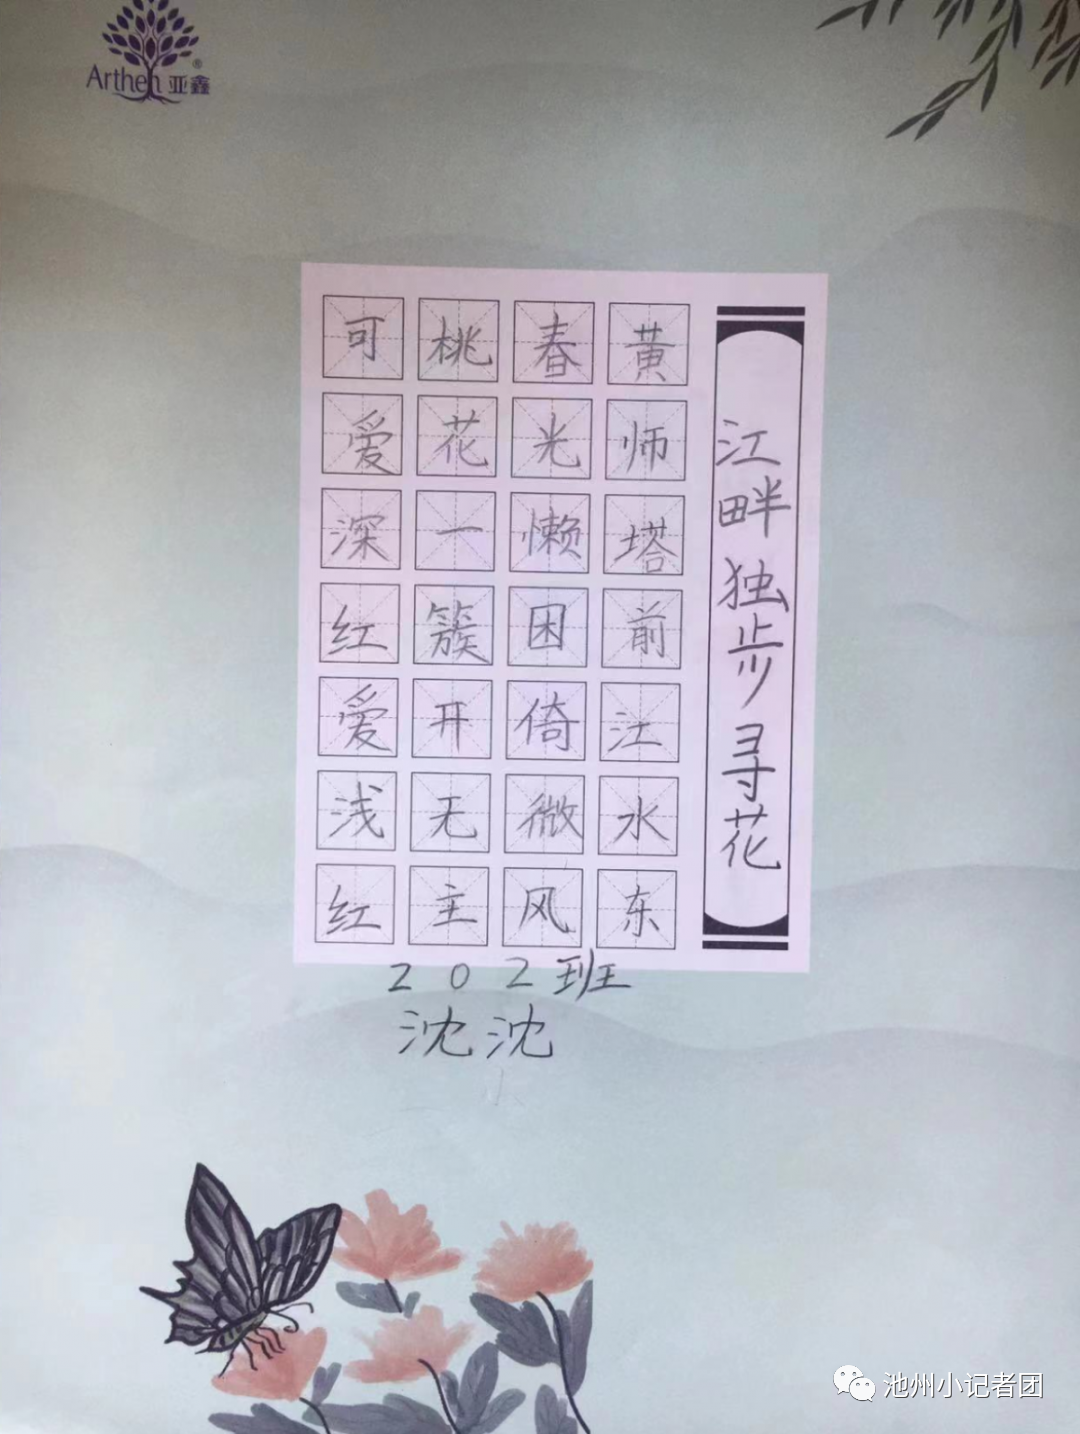 Arthen 亚鑫
江畔独步寻花
黄师塔前江水东
春光懒困倚微风
桃花一簇开无主
可爱深红爱浅红
202班
沈沈
池州小记者团